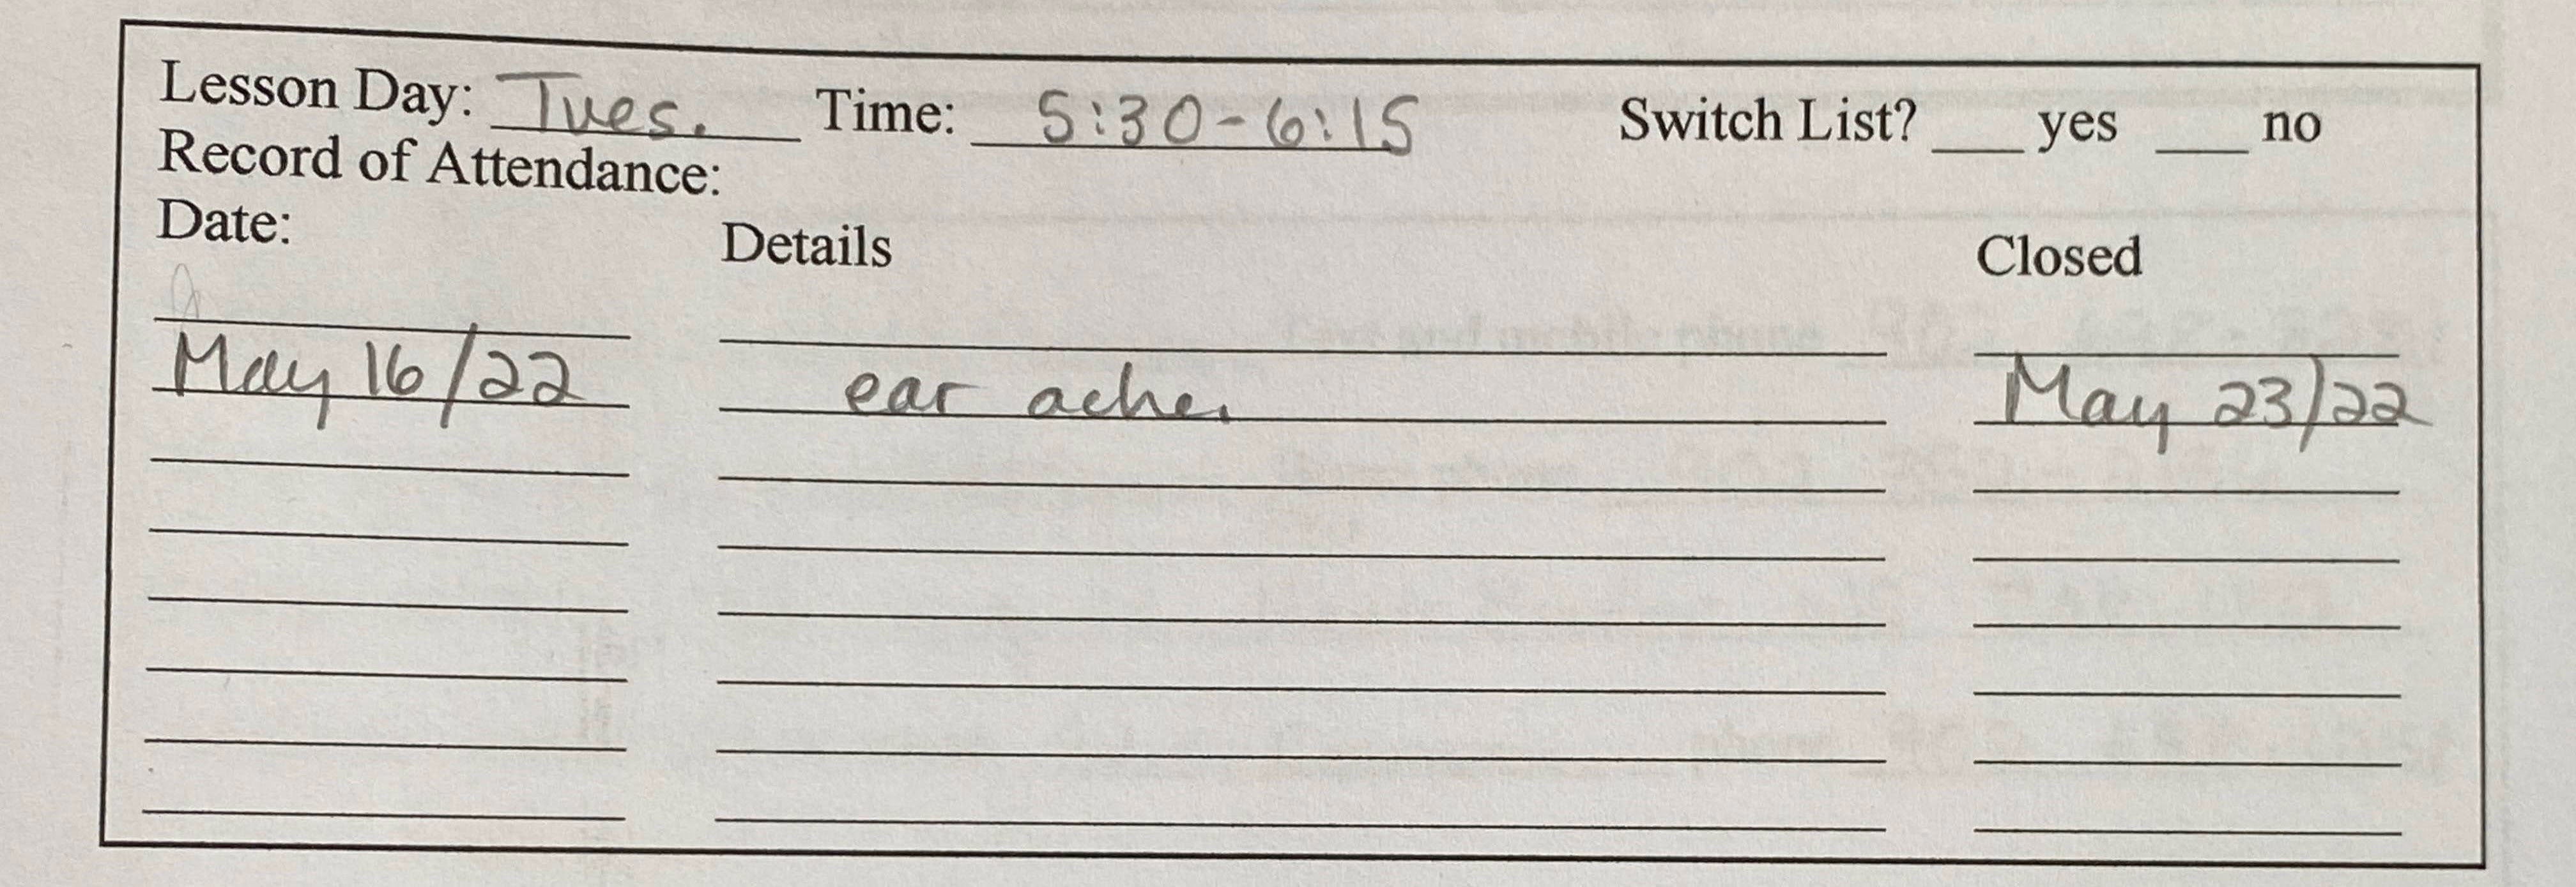 Lesson Day: Tues. Time: 5:30-6:15 Switch List? ___ yes ___ no
Record of Attendance:
Date: Details Closed
May 16/22 ear ache. May 23/22